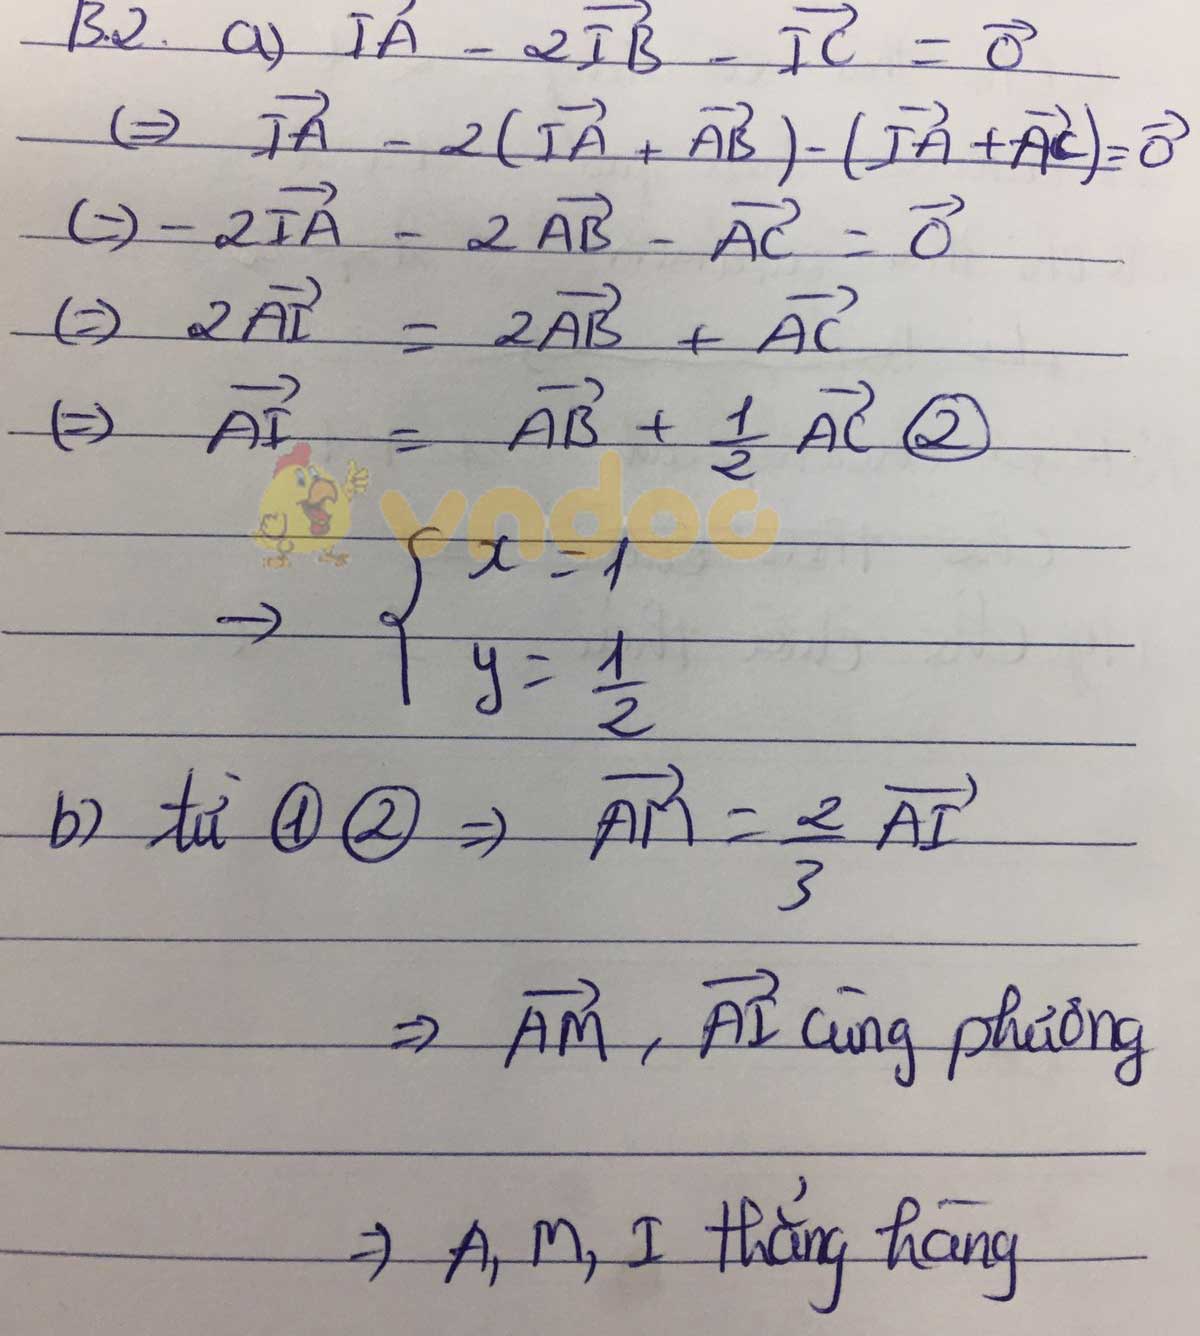 B.2. a) $\overrightarrow{IA} - 2\overrightarrow{IB} - \overrightarrow{IC} = \vec{0}$
(=) $\overrightarrow{IA} - 2(\overrightarrow{IA} + \overrightarrow{AB}) - (\overrightarrow{IA} + \overrightarrow{AC}) = \vec{0}$
(=) $-2\overrightarrow{IA} - 2\overrightarrow{AB} - \overrightarrow{AC} = \vec{0}$
(=) $2\overrightarrow{AI} = 2\overrightarrow{AB} + \overrightarrow{AC}$
(=) $\overrightarrow{AI} = \overrightarrow{AB} + \frac{1}{2}\overrightarrow{AC}$ ②
vndoc
→ { x = 1
y = $\frac{1}{2}$
b) từ ① ② ⇒ $\overrightarrow{AM} = \frac{2}{3}\overrightarrow{AI}$
⇒ $\overrightarrow{AM}$, $\overrightarrow{AI}$ cùng phương
⇒ A, M, I thẳng hàng